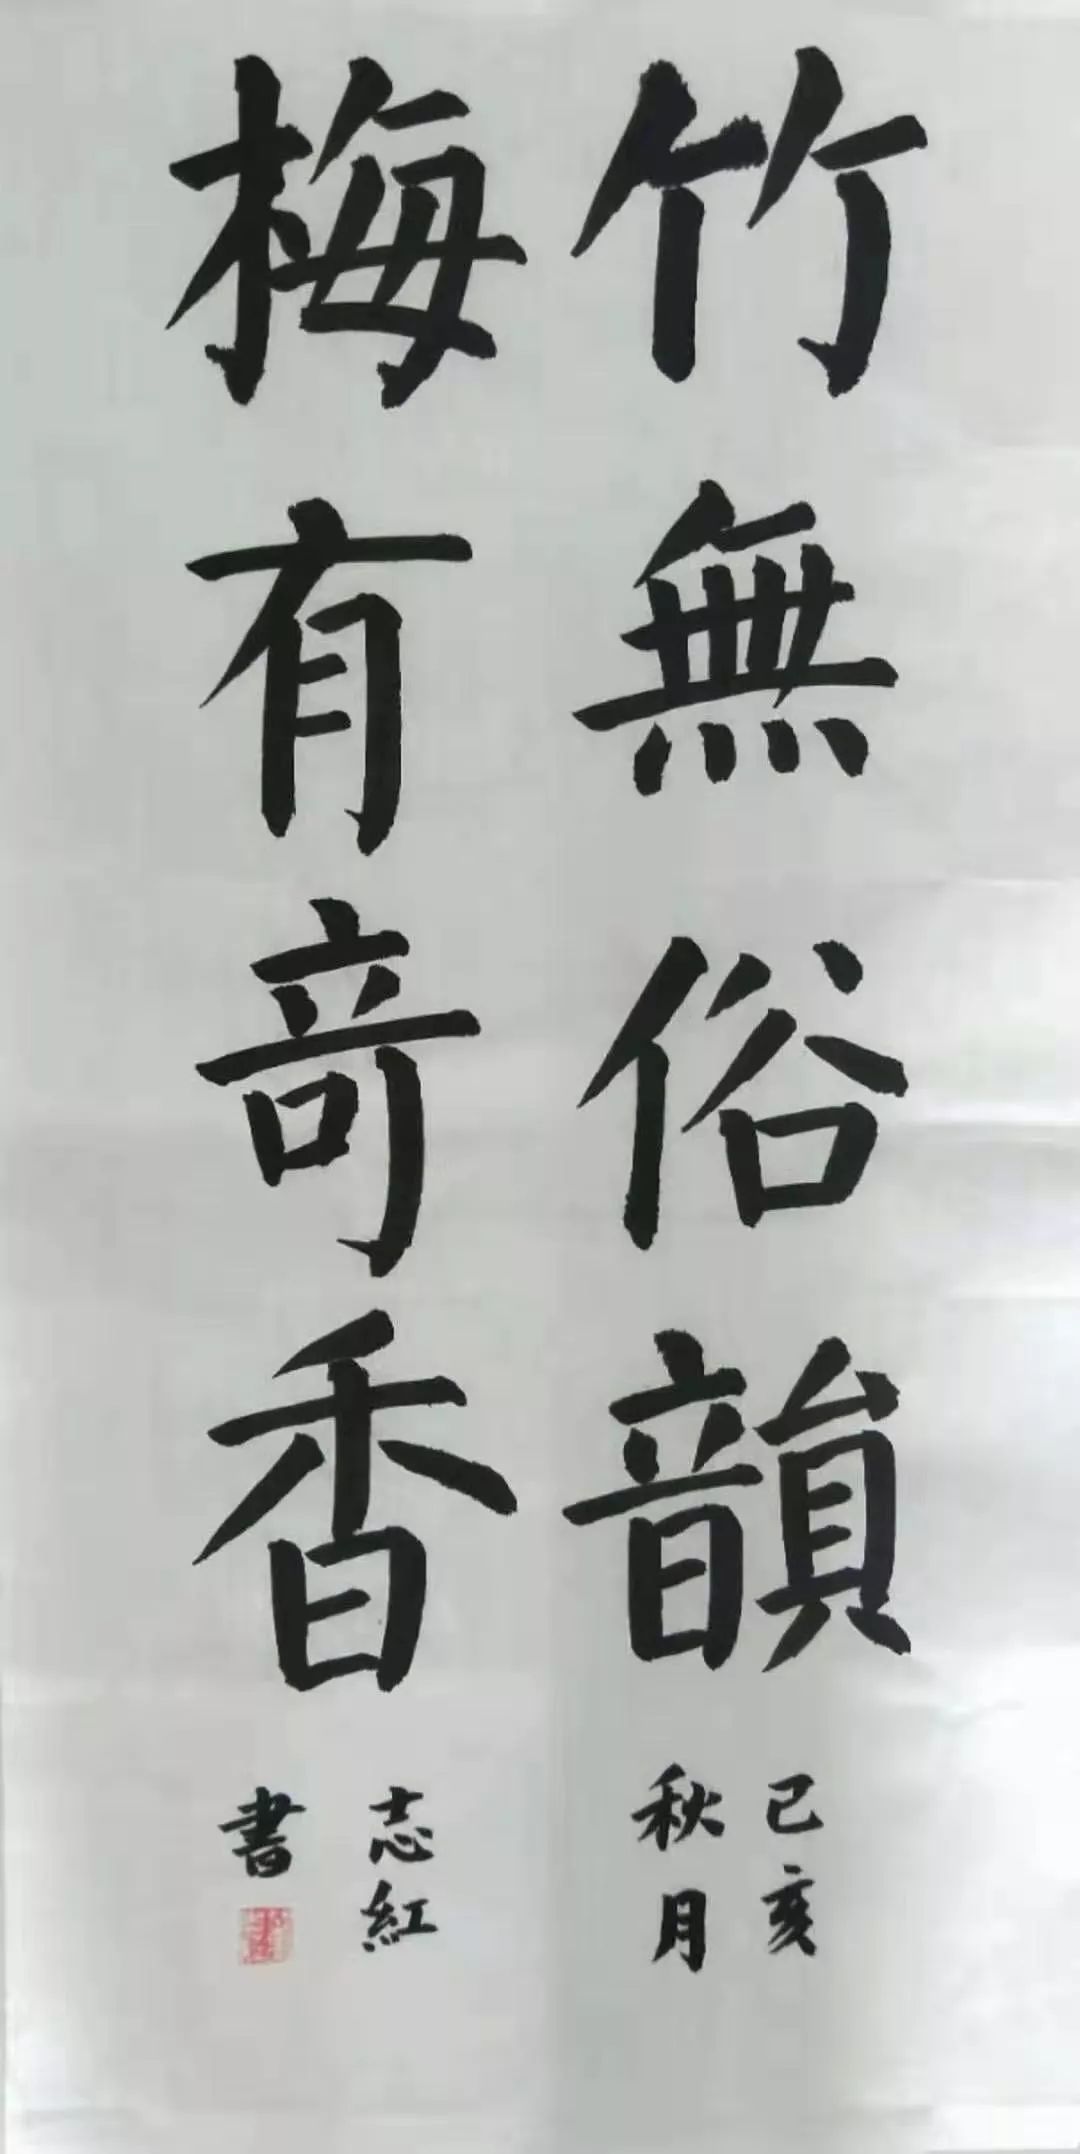 竹無俗韻
己亥
秋月
梅有奇香
志紅
書